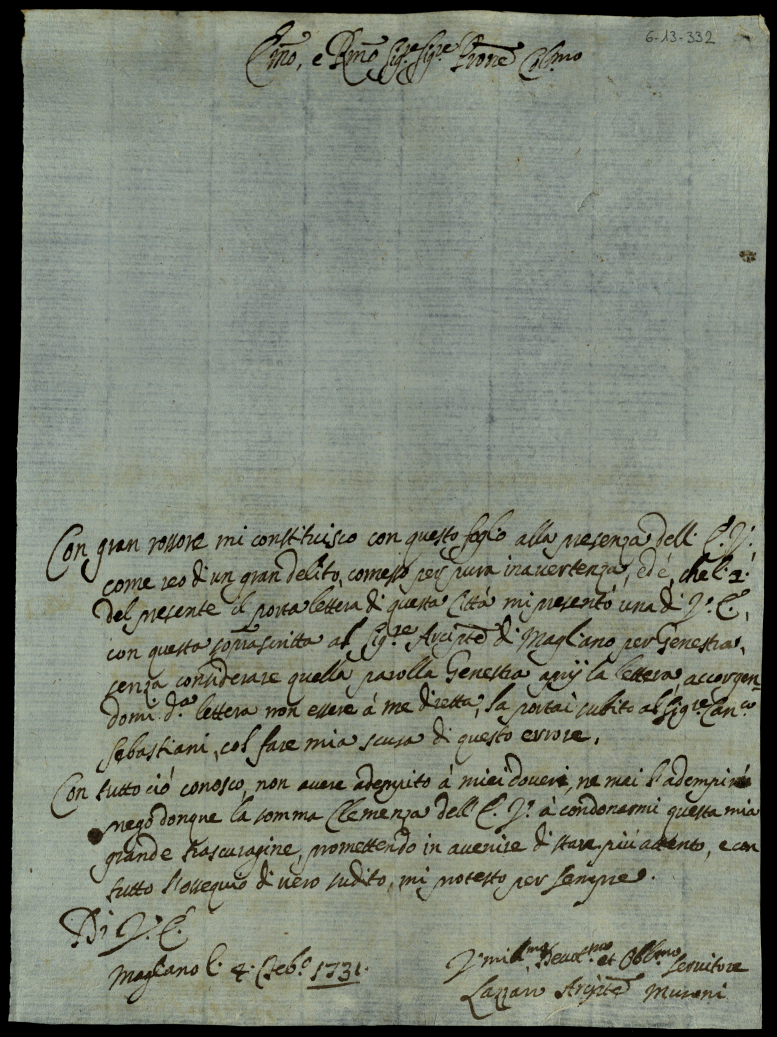 6-13-332
Emo, e Rmo Sigre Sigre Prone Colmo
Con gran rossore mi constituisco con questo foglio alla presenza dell' E. V.
come reo di un gran delito, comesso per pura inavertenza, ed é, che li 2.
del presente il porta lettera di questa Cittá mi presentó una di V. E.,
con questa soprascritta al Sigre Arcipte di Magliano per Genestra,
senza considerare quella parolla Genestra aprij la lettera, accorgen=
domi da lettera non essere á me diretta, la portai subito al Sigre Canco
Sebastiani, col fare mia scusa di questo errore.
Con tutto ció conosco, non avere adempito á miei doveri, ne mai l'adempiró
prego donque la somma Clemenza dell' E. V. á condonarmi questa mia
grande trascuragine, promettendo in avenire di stare piú attento, e con
tutto l'ossequio di vero sudito, mi protesto per sempre.
Di V. E.
Magliano li 4. Febo 1731.
Vmillmo Devotmo et Obblmo Servitore
Lazzaro Arcipte Muroni